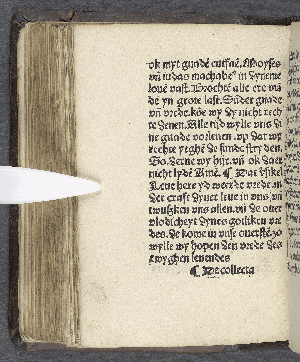 ok myt gnadē entfaē. Moyses
vñ iudas machabeꝰ in dyneme
louē vast. Brochtē alle ere
dē yn grote last. Sūder gnade
vñ vrede. kōe wy dy nicht rech
te denen. Alle tijd wylle vns dy
ne gnade vorlenen. vp dat wy
rechte yeghē de sunde stryden.
So. gerne wy hijr. vñ ok dar
nicht lydē Amē. ¶ Dat
Leue here yd werde vrede in
der craft dyner leue in vns vñ
twusken vns allen. vñ de ouer
vlodicheyt dynes gotliken vre
des. de kome in vnse
wylle wy hopen den vrede des
ewyghen leuendes
¶ De collecta